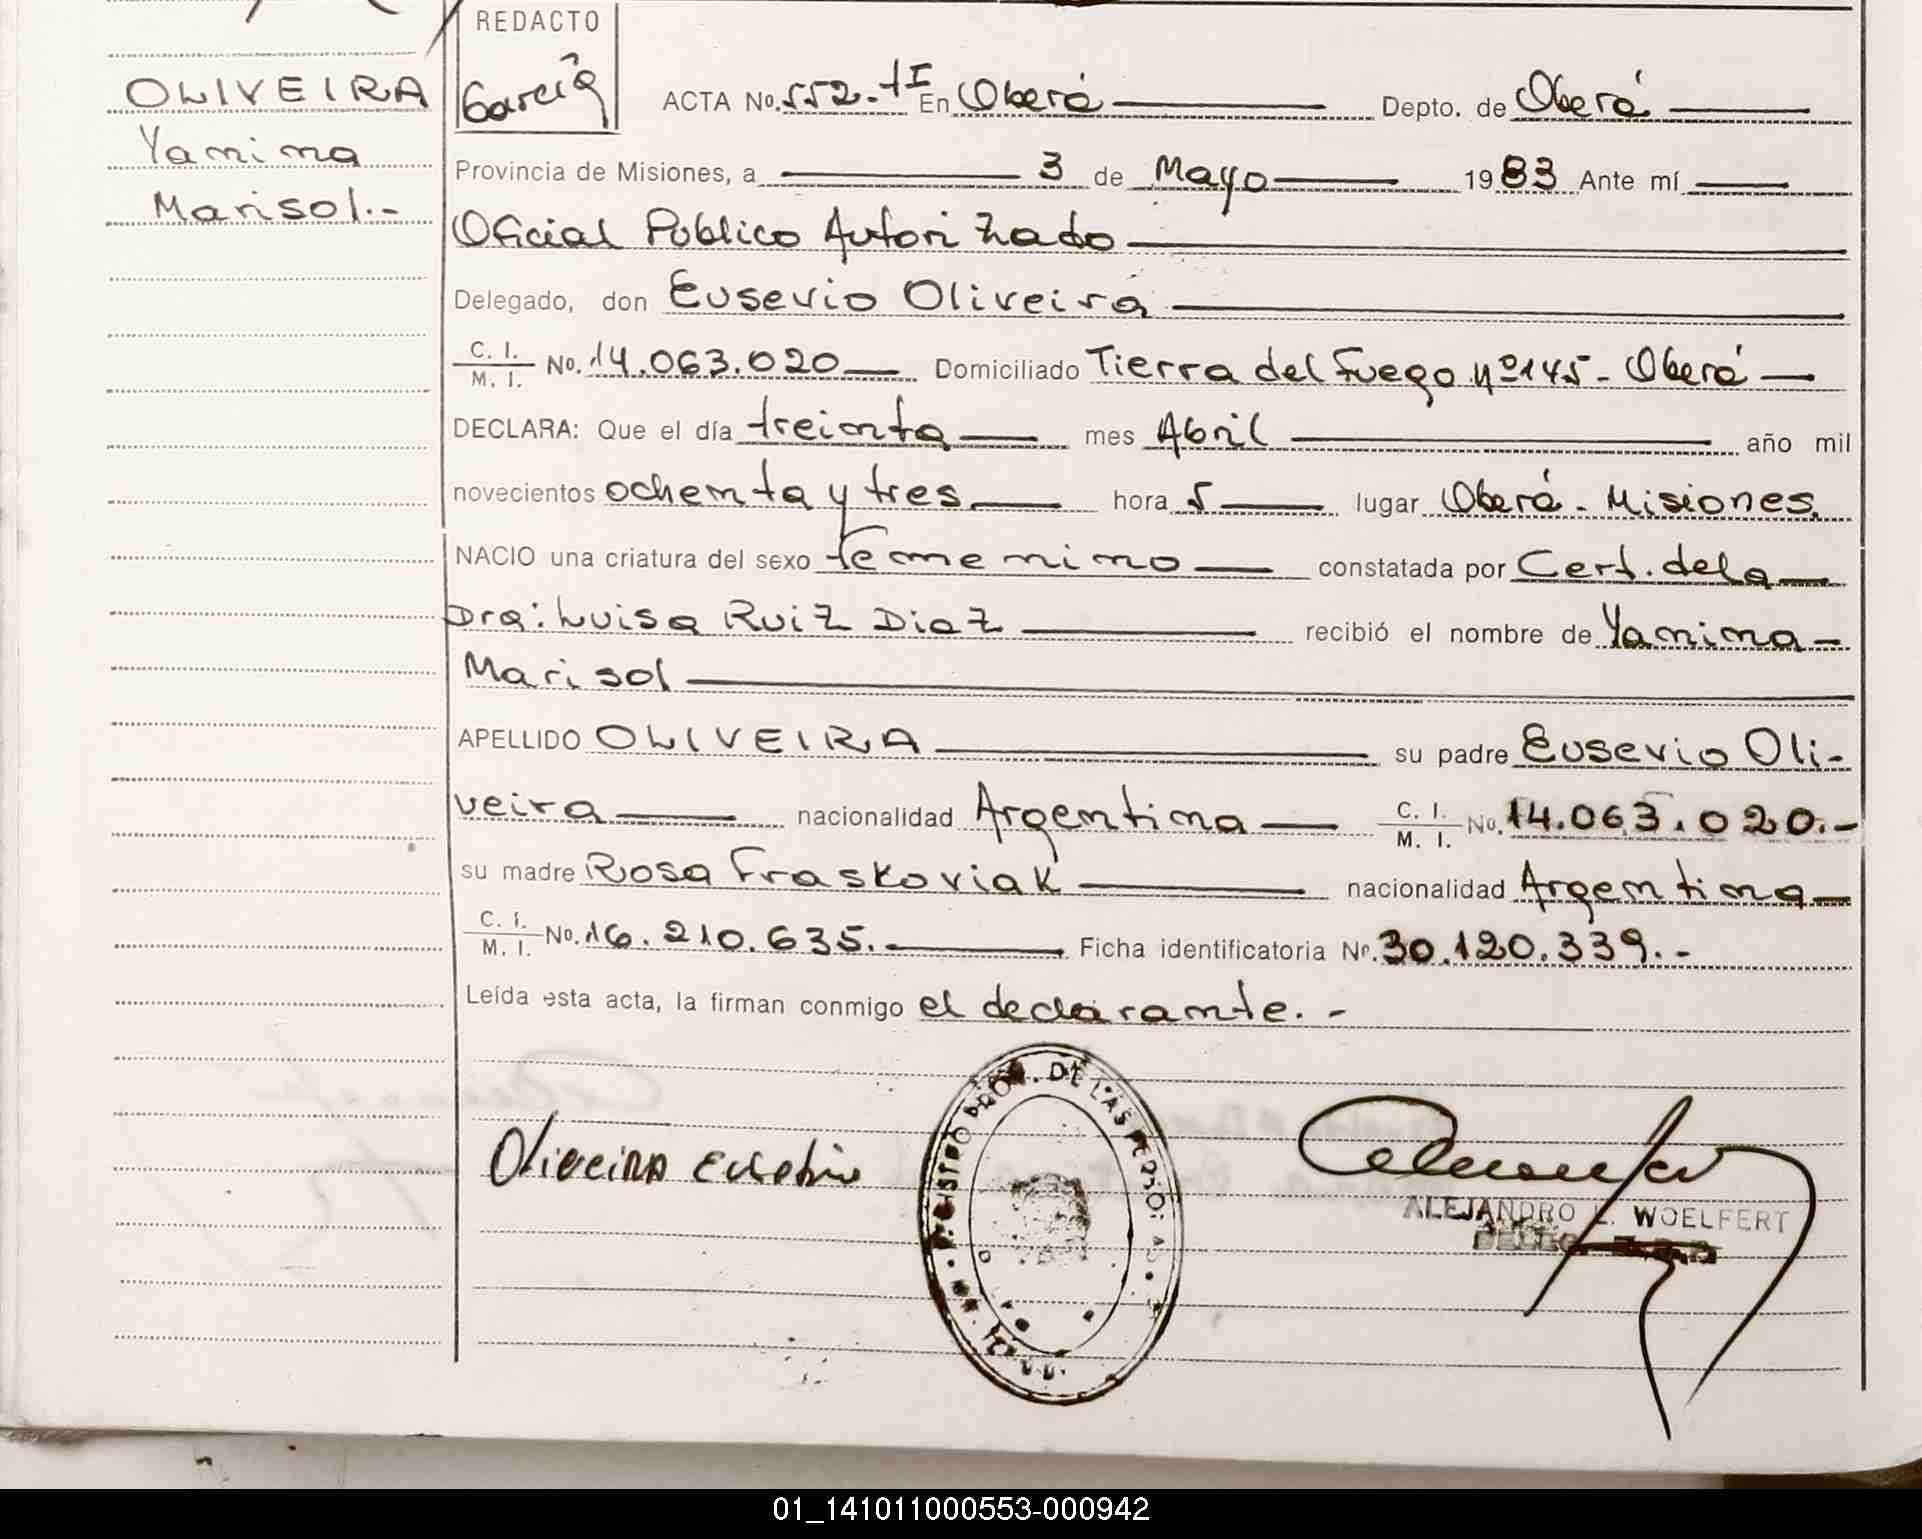 REDACTO
García
OLIVEIRA
Yanina
Marisol.-
ACTA No. 552.-tI En Oberá Depto. de Oberá
Provincia de Misiones, a 3 de Mayo 1983 Ante mí
Oficial Público Autorizado
Delegado, don Eusevio Oliveira
C. I. / M. I. No. 14.063.020 Domiciliado Tierra del Fuego nº 145 - Oberá
DECLARA: Que el día treinta mes Abril año mil
novecientos ochenta y tres hora 5 lugar Oberá - Misiones.
NACIO una criatura del sexo femenino constatada por Cert. de la
Dra: Luisa Ruiz Diaz recibió el nombre de Yanina
Marisol
APELLIDO OLIVEIRA su padre Eusevio Oli-
veira nacionalidad Argentina C. I. / M. I. No. 14.063.020.-
su madre Rosa Fraskoviak nacionalidad Argentina
C. I. / M. I. No. 16.210.635. Ficha identificatoria Nº. 30.120.339.-
Leída esta acta, la firman conmigo el declarante. -
Oliveira Eusebio
REGISTRO PROV. DE LAS PERSONAS
ALEJANDRO L. WOELFERT
01_141011000553-000942